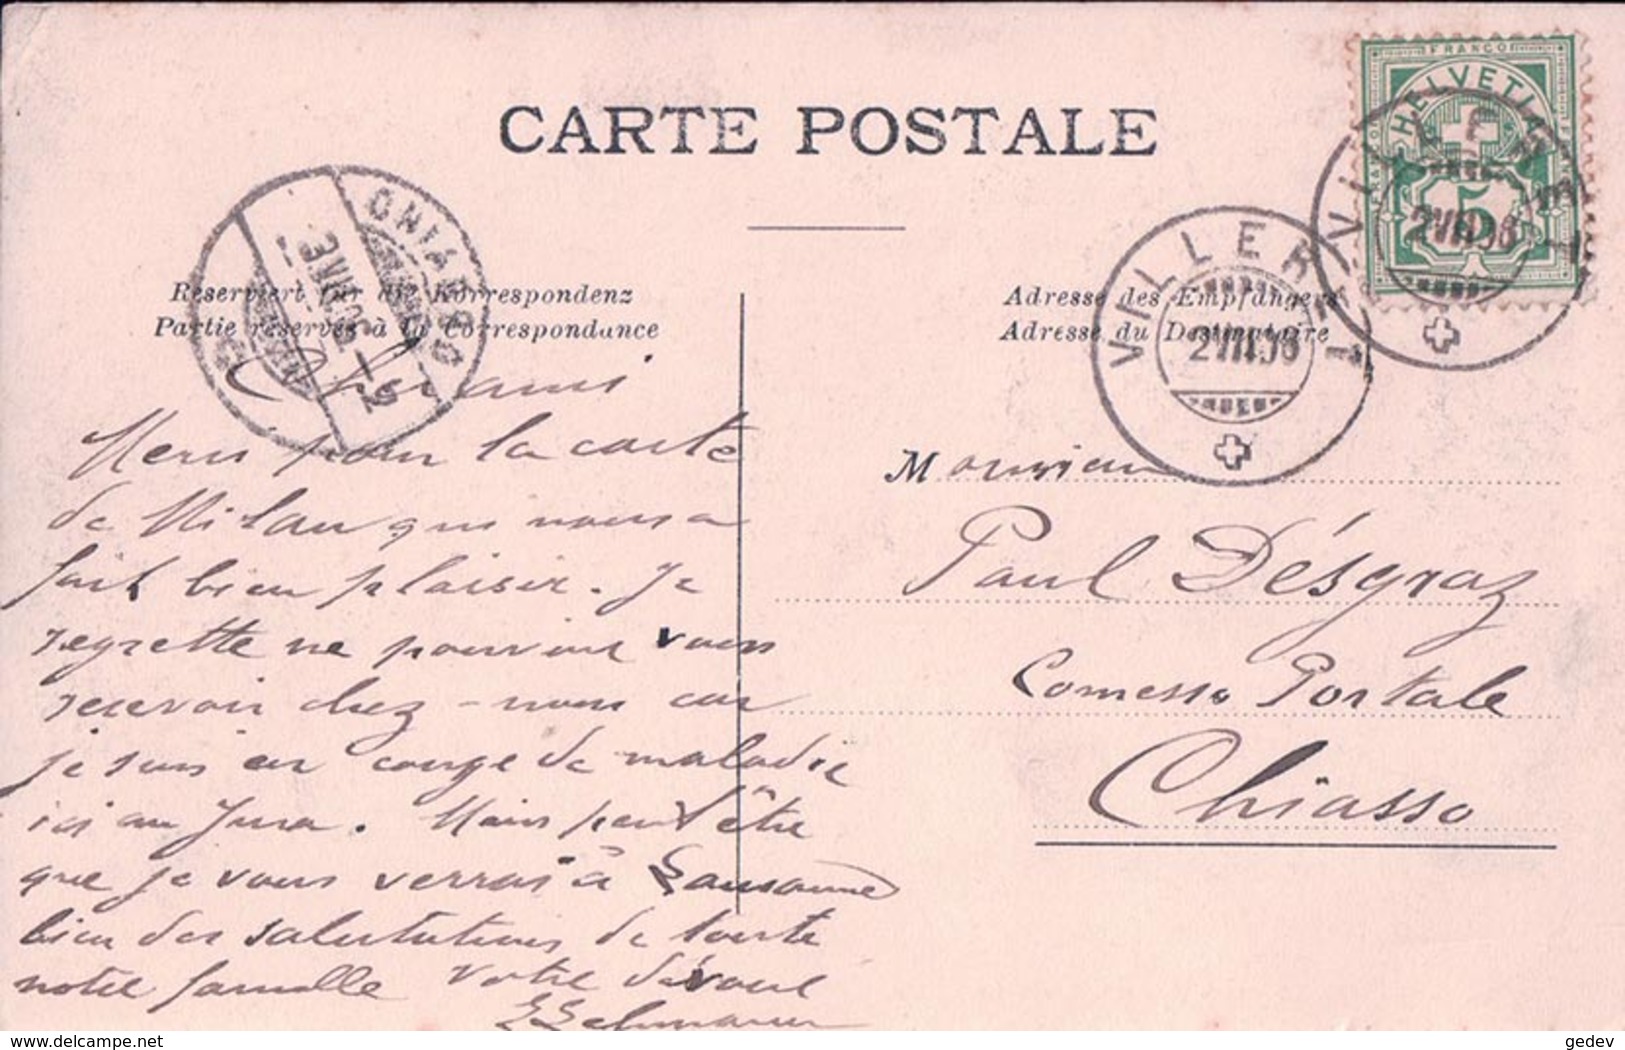 FRANCO
HELVETIA
5
CARTE POSTALE
VILLERET
2 VIII 06
VILLERET
2 VIII 06
CHIASSO
3 VIII 06
Reserviert für die Korrespondenz
Partie réservée à la correspondance
Adresse des Empfängers
Adresse du Destinataire
Cher ami
Merci pour la carte
de Milan qui nous a
fait bien plaisir. Je
regrette ne pouvoir vous
recevoir chez-nous car
je suis en congé de maladie
ici au Jura. Mais peut être
que je vous verrai à Lausanne
bien des salutations de toute
notre famille Votre dévoué
Monsieur
Paul Désgraz
Comesso Postale
Chiasso
delcampe.net
gedev